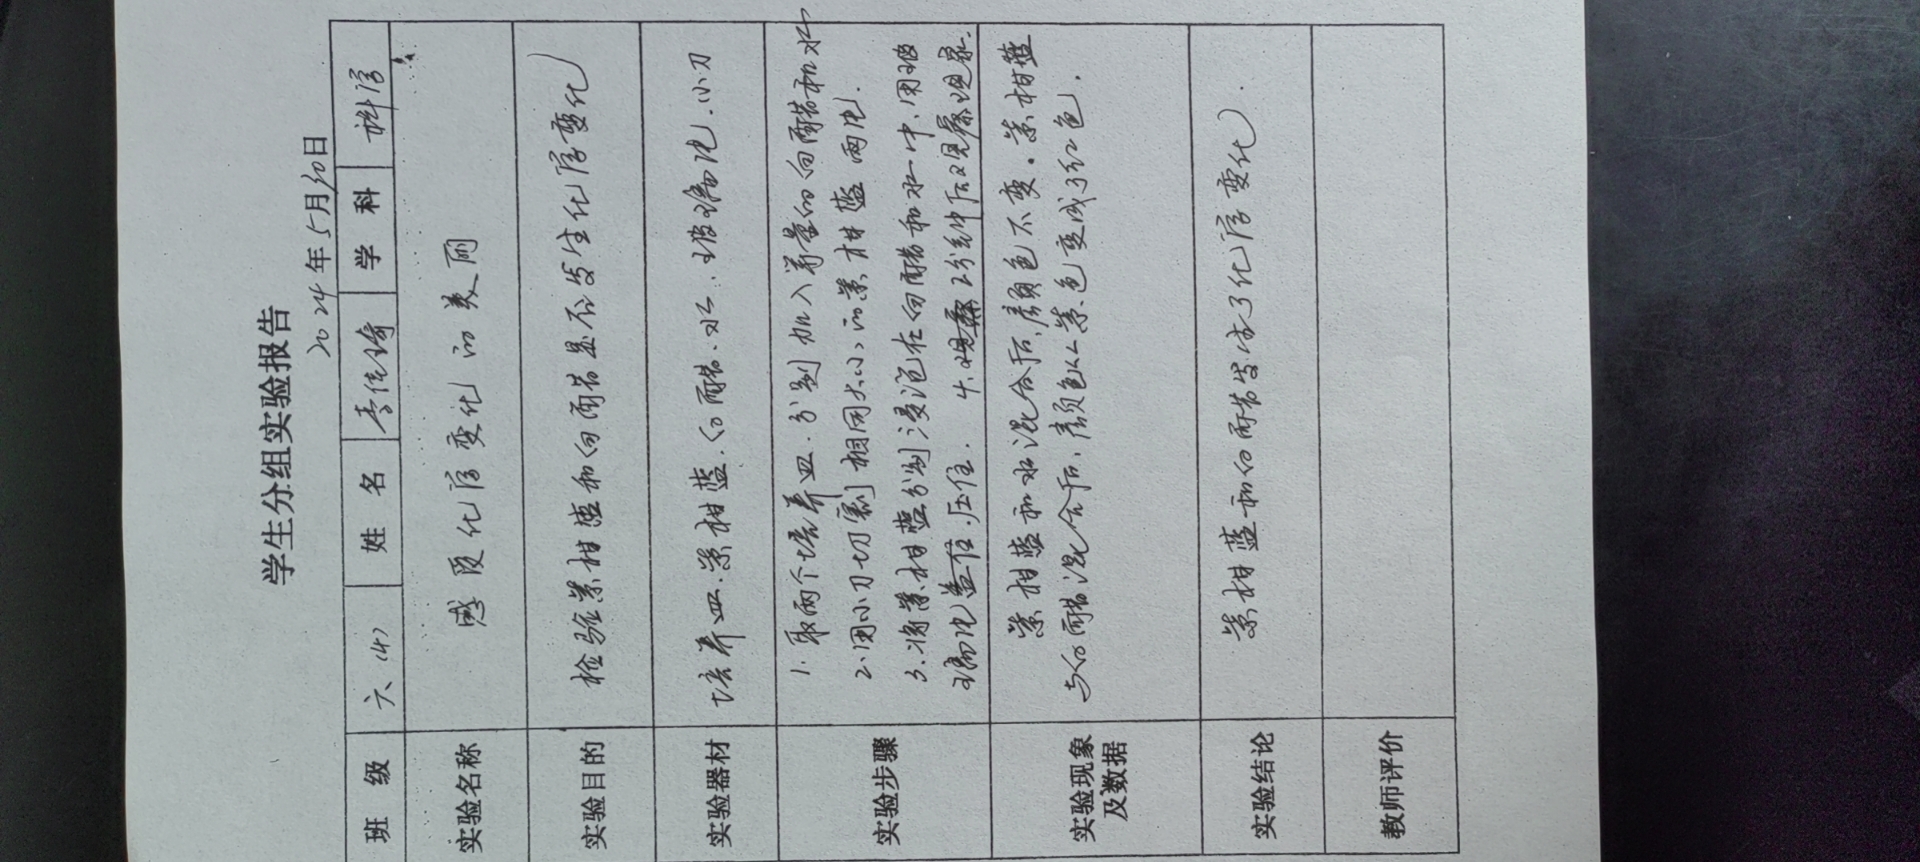 学生分组实验报告
2024年5月30日
班 级 六(4) 姓 名 李佳锜 学 科 科学
实验名称 感受化学变化的美丽
实验目的 检验紫柑蓝和白醋是否发生化学变化
实验器材 培养皿.紫柑蓝.白醋.水.玻璃片.小刀
实验步骤
1.取两个培养皿.分别加入等量的白醋和水
2.用小刀切割相同大小的紫柑蓝两片.
3.将紫柑蓝分别浸泡在白醋和水中.用玻
璃片盖住压住. 4.观察2分钟后观察现象.
实验现象
及数据
紫柑蓝和水混合后,颜色不变.紫柑蓝
与白醋混合后,颜色从紫色变成了红色.
实验结论 紫柑蓝和白醋发生了化学变化.
教师评价